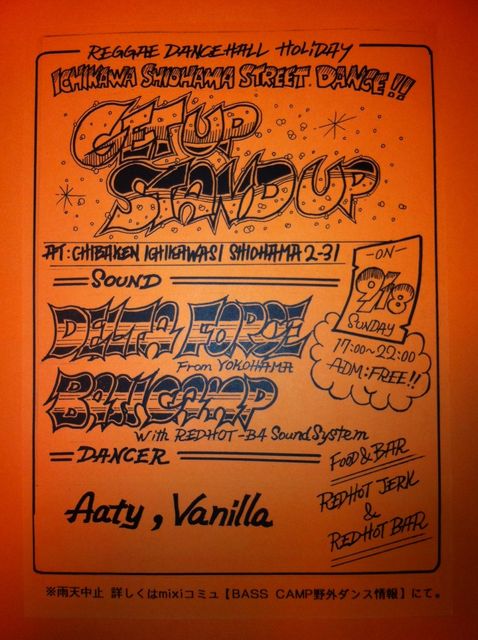 REGGAE DANCEHALL HOLIDAY
ICHIKAWA SHIOHAMA STREET DANCE!!
GET UP
STAND UP
AT: CHIBAKEN ICHIKAWASI SHIOHAMA 2-31
-ON-
9/18
SUNDAY
17:00~22:00
ADM: FREE!!
SOUND
DELTA FORCE
From YOKOHAMA
BASS CAMP
With REDHOT-B4 Sound System
DANCER
Aaty, Vanilla
FOOD & BAR
REDHOT JERK
&
REDHOT BAR
※雨天中止 詳しくはmixiコミュ【BASS CAMP野外ダンス情報】にて。